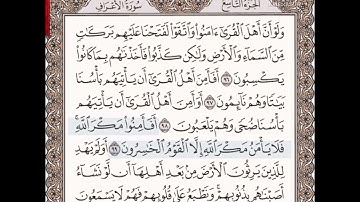 سُورَةُ الأَعْرَافِ الجُزْءُ التَّاسِعُ
وَلَوْ أَنَّ أَهْلَ الْقُرَىٰ ءَامَنُوا وَاتَّقَوْا لَفَتَحْنَا عَلَيْهِم بَرَكَاتٍ
مِّنَ السَّمَاءِ وَالْأَرْضِ وَلَٰكِن كَذَّبُوا فَأَخَذْنَاهُم بِمَا كَانُوا
يَكْسِبُونَ ٩٦ أَفَأَمِنَ أَهْلُ الْقُرَىٰ أَن يَأْتِيَهُم بَأْسُنَا
بَيَاتًا وَهُمْ نَائِمُونَ ٩٧ أَوَأَمِنَ أَهْلُ الْقُرَىٰ أَن يَأْتِيَهُم
بَأْسُنَا ضُحًى وَهُمْ يَلْعَبُونَ ٩٨ أَفَأَمِنُوا مَكْرَ اللَّهِ
فَلَا يَأْمَنُ مَكْرَ اللَّهِ إِلَّا الْقَوْمُ الْخَاسِرُونَ ٩٩ أَوَلَمْ يَهْدِ
لِلَّذِينَ يَرِثُونَ الْأَرْضَ مِن بَعْدِ أَهْلِهَا أَن لَّوْ نَشَاءُ
أَصَبْنَاهُم بِذُنُوبِهِمْ وَنَطْبَعُ عَلَىٰ قُلُوبِهِمْ فَهُمْ لَا يَسْمَعُونَ